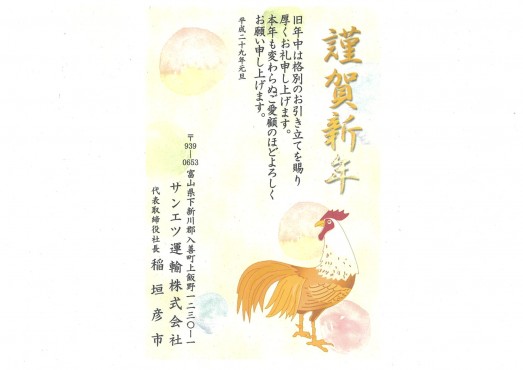 謹賀新年
旧年中は格別のお引き立てを賜り
厚くお礼申し上げます。
本年も変わらぬご愛顧のほどよろしく
お願い申し上げます。
平成二十九年元旦
〒939-0653 富山県下新川郡入善町上飯野一二三〇-一
サンエツ運輸株式会社
代表取締役社長 稲垣彦市